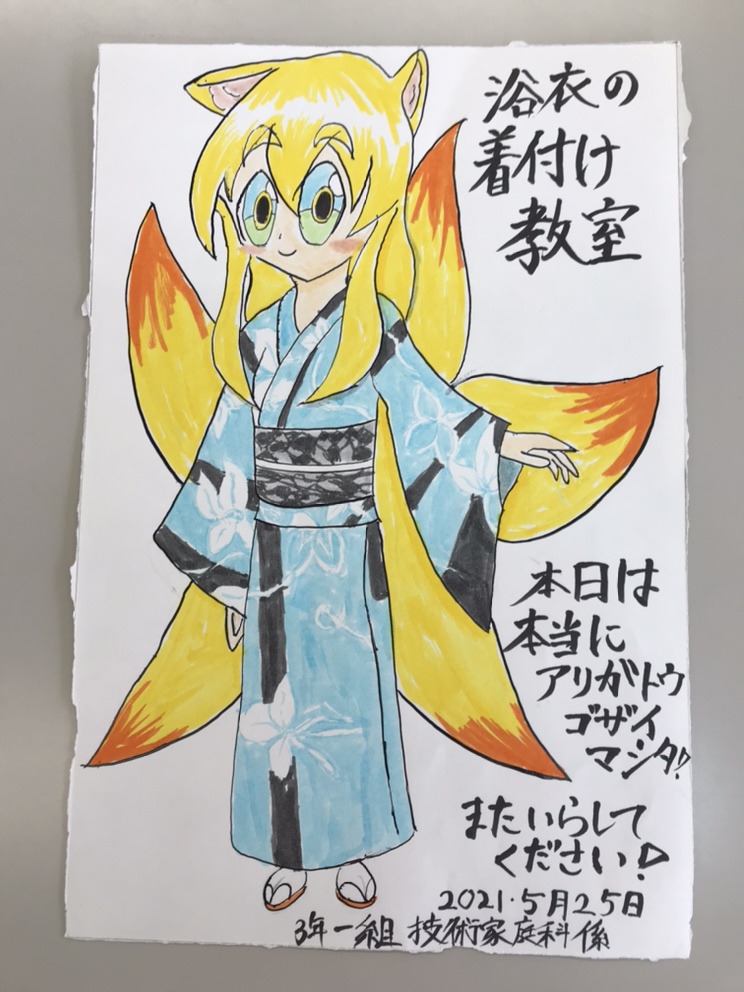 浴衣の
着付け
教室
本日は
本当に
アリガトウ
ゴザイ
マシタ!
またいらして
ください!
2021.5月25日
3年一組 技術家庭科係